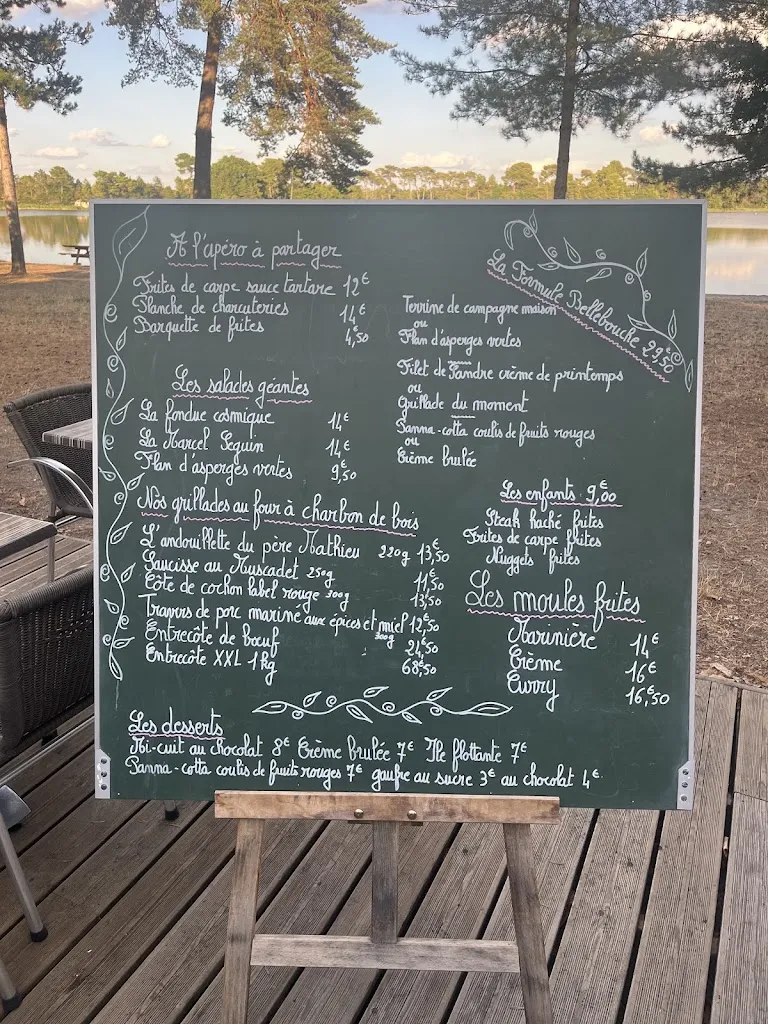 A l'apéro à partager
Frites de carpe sauce tartare 12€
Planche de charcuteries 14€
Barquette de frites 4,50
Les salades géantes
La fondue cosmique 14€
La Marcel Seguin 14€
Flan d'asperges vertes 9€,50
Nos grillades au four à charbon de bois
L'andouillette du père Mathieu 220g 13€,50
Saucisse au Muscadet 250g 11€,50
Côte de cochon label rouge 300g 13€,50
Travers de porc marine aux épices et miel 12€,50
Entrecôte de bœuf 300g 24€,50
Entrecôte XXL 1kg 68€,50
La Formule Bellebouche 29€,50
Terrine de campagne maison
ou
Flan d'asperges vertes
Filet de Sandre crème de printemps
ou
Grillade du moment
Panna-cotta coulis de fruits rouges
ou
Crème brulée
Les enfants 9€,00
Steak haché frites
Frites de carpe frites
Nuggets frites
Les moules frites
Marinière 14€
Crème 16€
Curry 16€,50
Les desserts
Mi-cuit au chocolat 8€ Crème brulée 7€ Ile flottante 7€
Panna-cotta coulis de fruits rouges 7€ gaufre au sucre 3€ au chocolat 4€